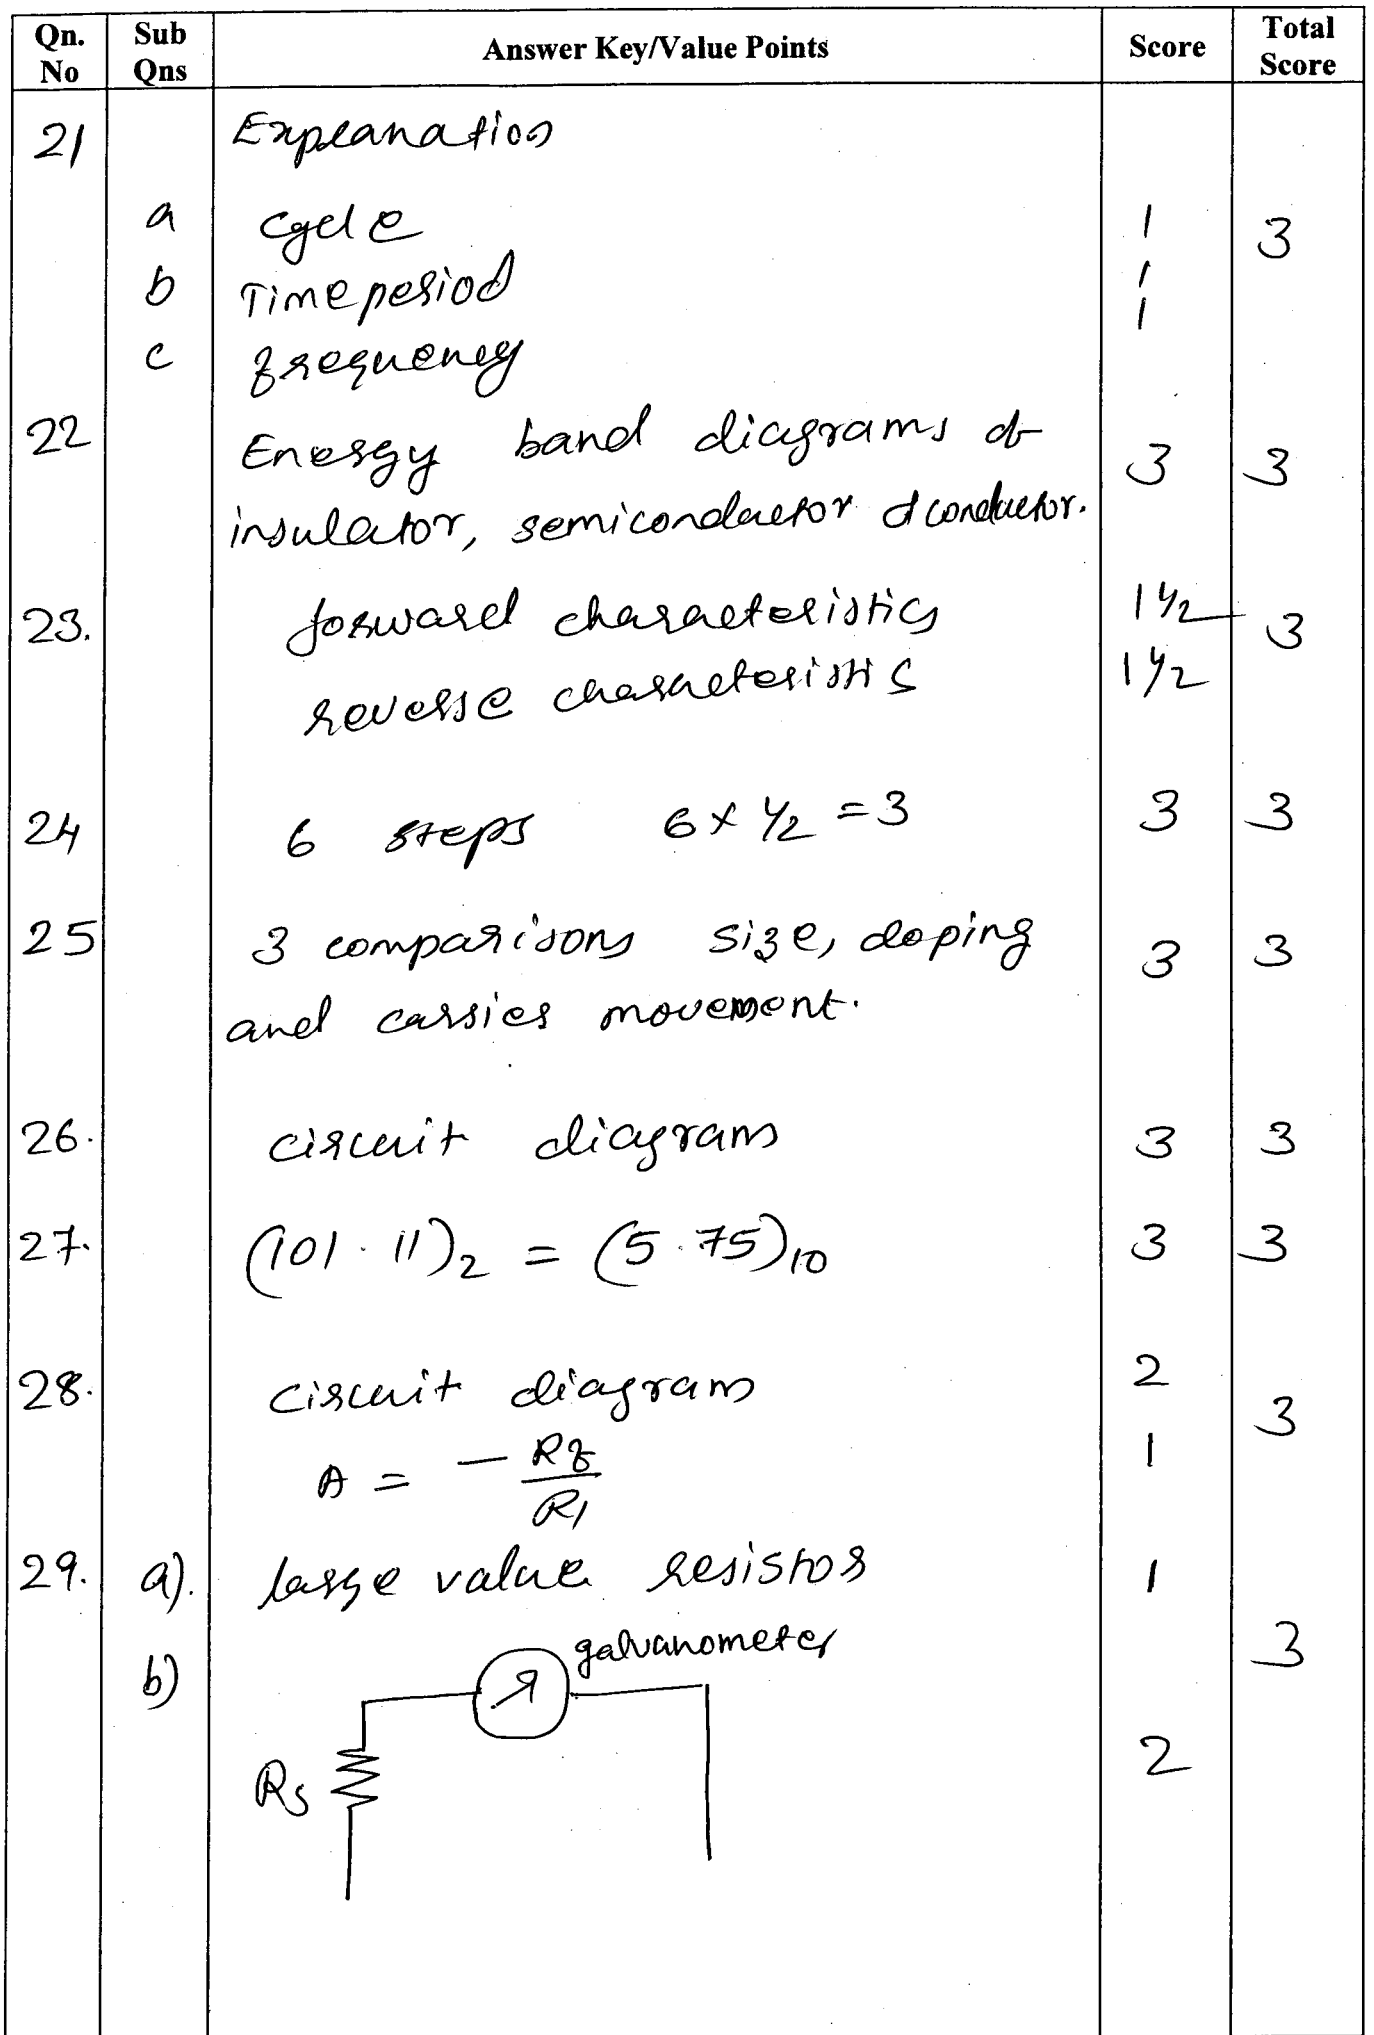 Qn. No Sub Qns Answer Key/Value Points Score Total Score
21 Explanation
a cycle 1 3
b Time period 1
c frequency 1
22 Energy band diagrams of 3 3
insulator, semiconductor & conductor.
23. forward characteristics 1 1/2 3
reverse characteristics 1 1/2
24 6 steps 6 x 1/2 = 3 3 3
25 3 comparisons size, doping 3 3
and carrier movement.
26. circuit diagram 3 3
27. (101.11)2 = (5.75)10 3 3
28. circuit diagram 2 3
A = - Rf / R1 1
29. a). large value resistor 1 3
b) galvanometer
Rs 2